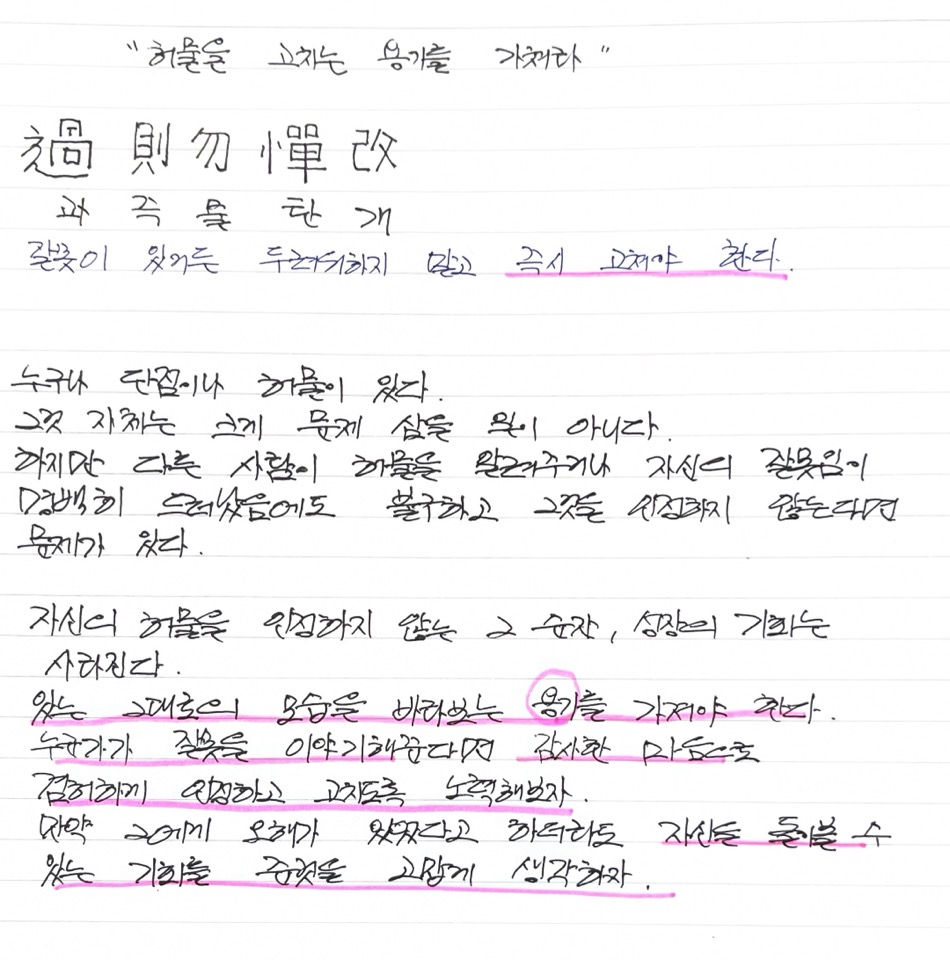 "허물을 고치는 용기를 가져라"
過則勿憚改
과 즉 물 탄 개
잘못이 있거든 두려워하지 말고 즉시 고쳐야 한다.
누구나 단점이나 허물이 있다.
그것 자체는 크게 문제 삼을 일이 아니다.
하지만 다른 사람이 허물을 알려주거나 자신의 잘못임이
명백히 드러났음에도 불구하고 그것을 인정하지 않는다면
문제가 있다.
자신의 허물을 인정하지 않는 그 순간, 성장의 기회는
사라진다.
있는 그대로의 모습을 바라보는 용기를 가져야 한다.
누군가가 잘못을 이야기해준다면 감사한 마음으로
겸허하게 인정하고 고치도록 노력해보자.
만약 그에게 오해가 있었다고 하더라도 자신을 돌아볼 수
있는 기회를 준것을 고맙게 생각하자.